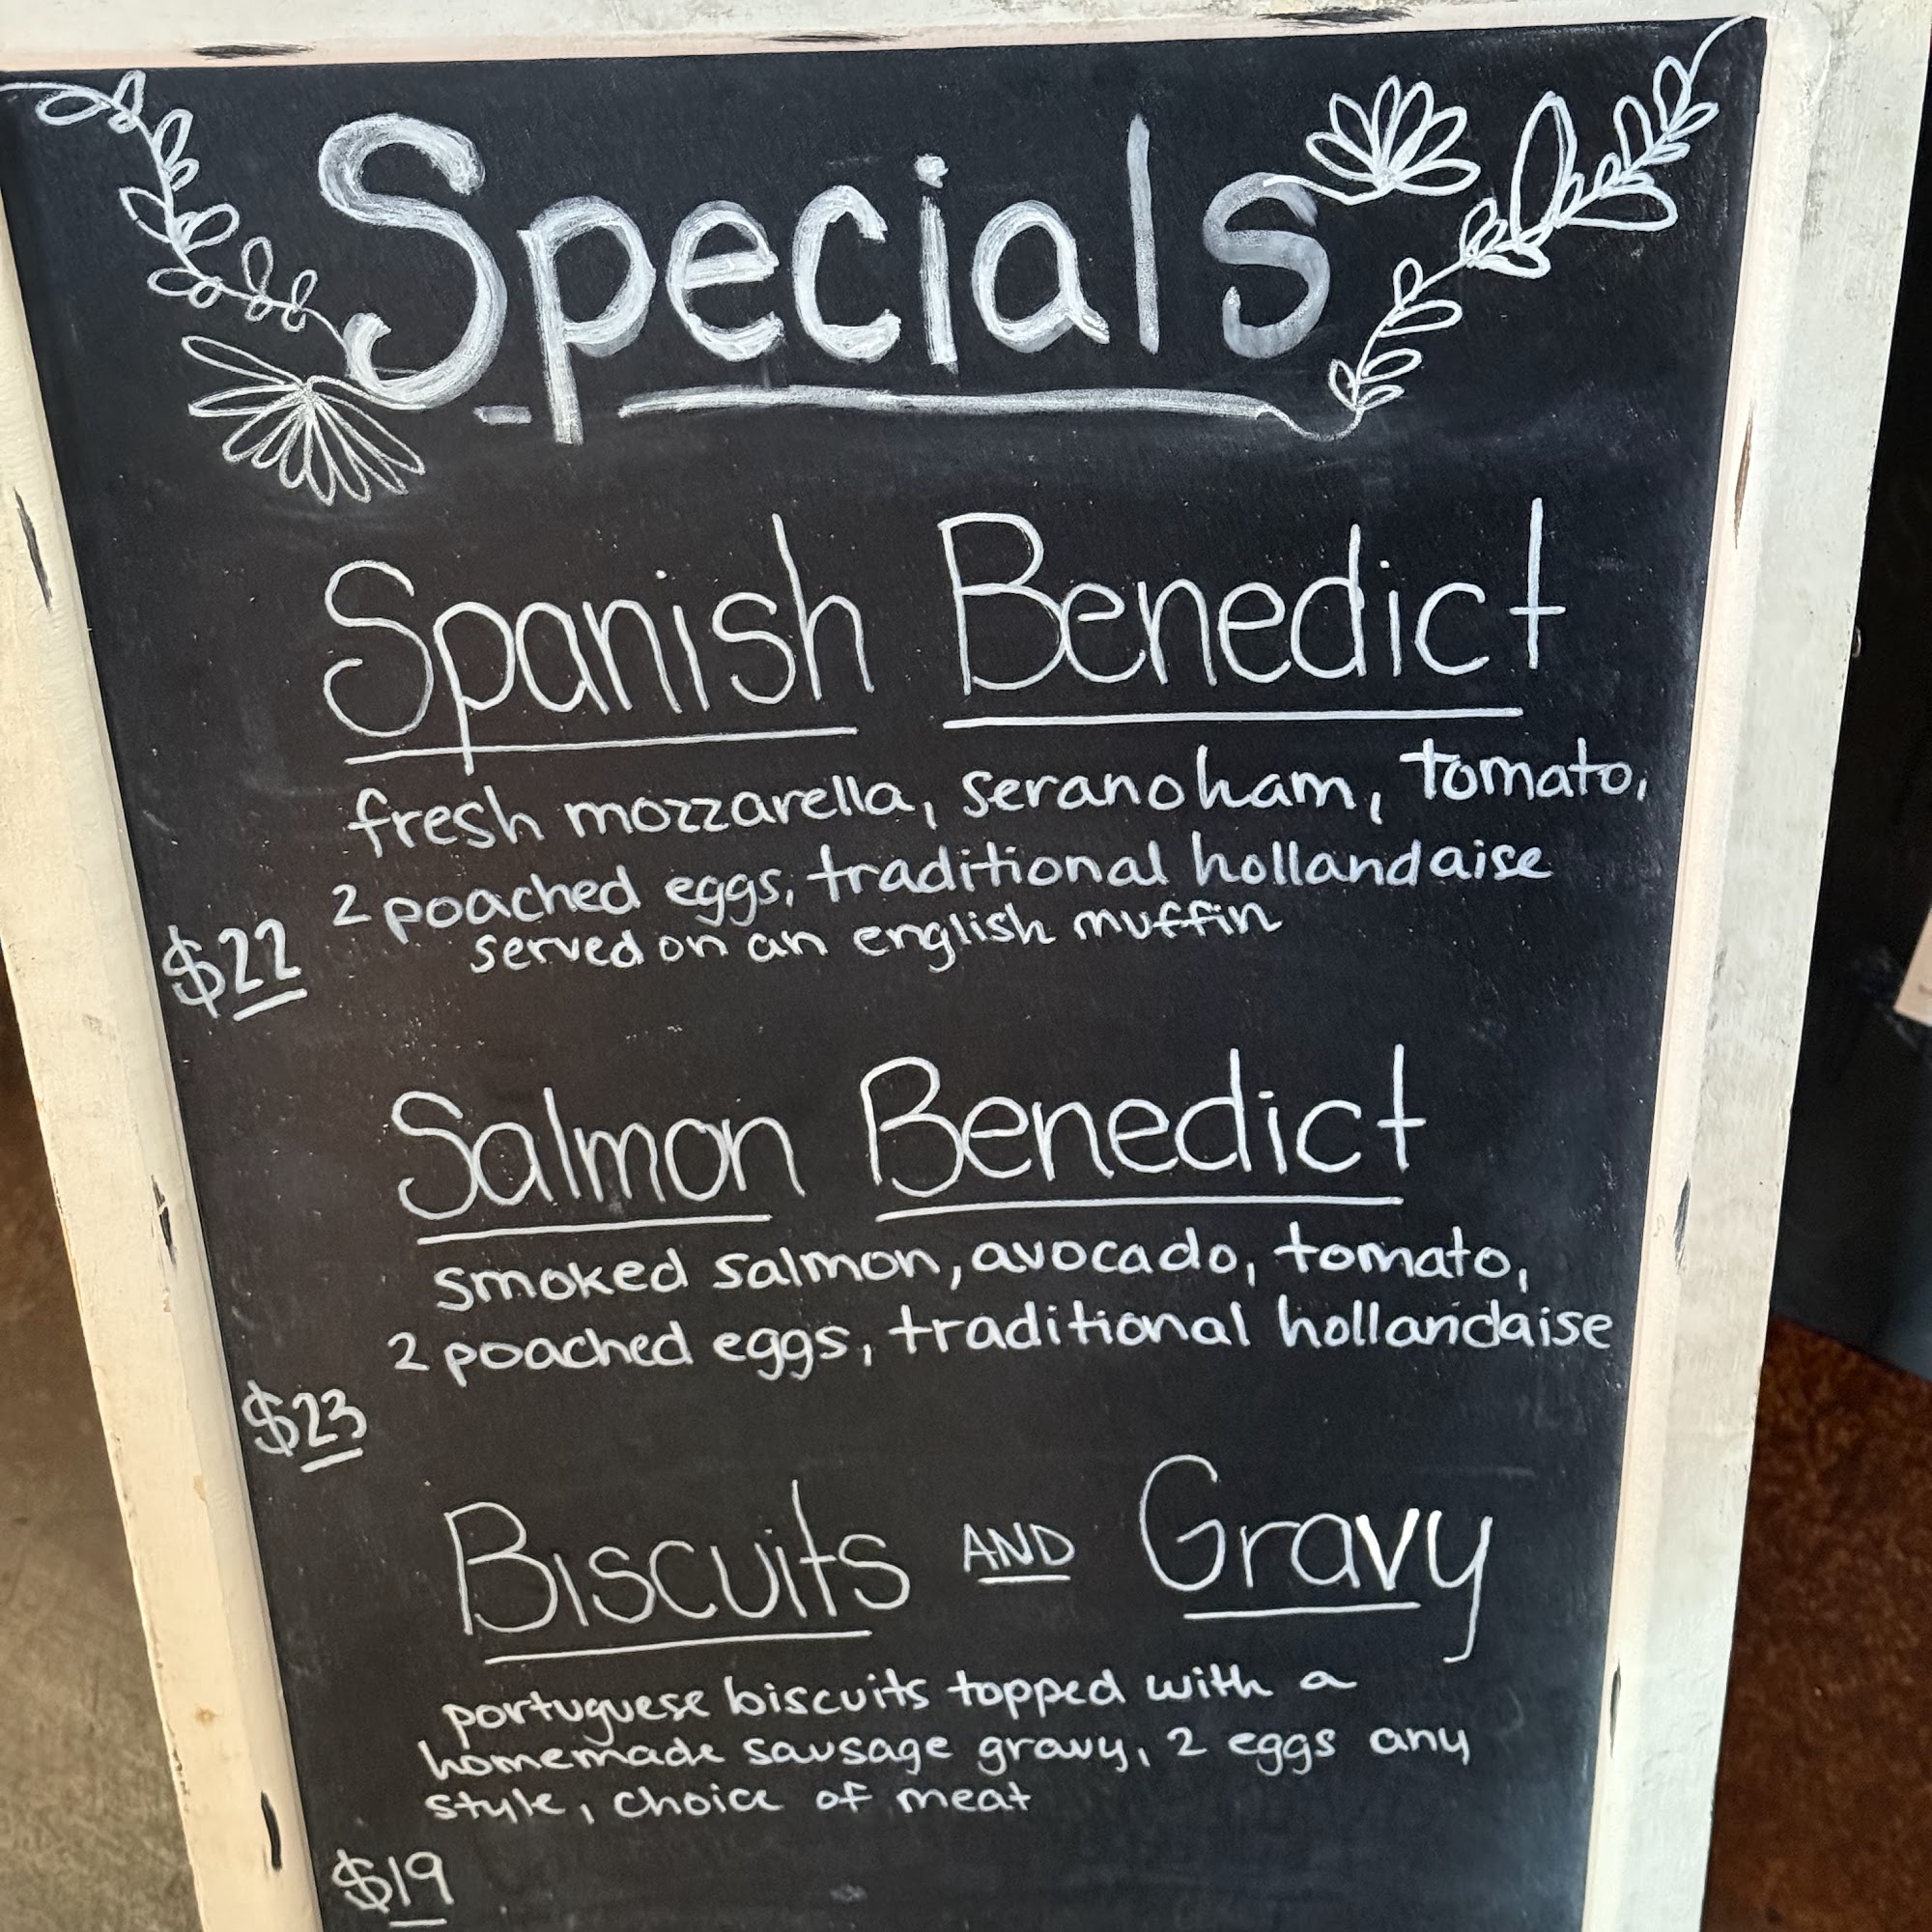 Specials
Spanish Benedict
fresh mozzarella, serano ham, tomato,
2 poached eggs, traditional hollandaise
served on an english muffin
$22
Salmon Benedict
smoked salmon, avocado, tomato,
2 poached eggs, traditional hollandaise
$23
Biscuits AND Gravy
portuguese biscuits topped with a
homemade sausage gravy, 2 eggs any
style, choice of meat
$19